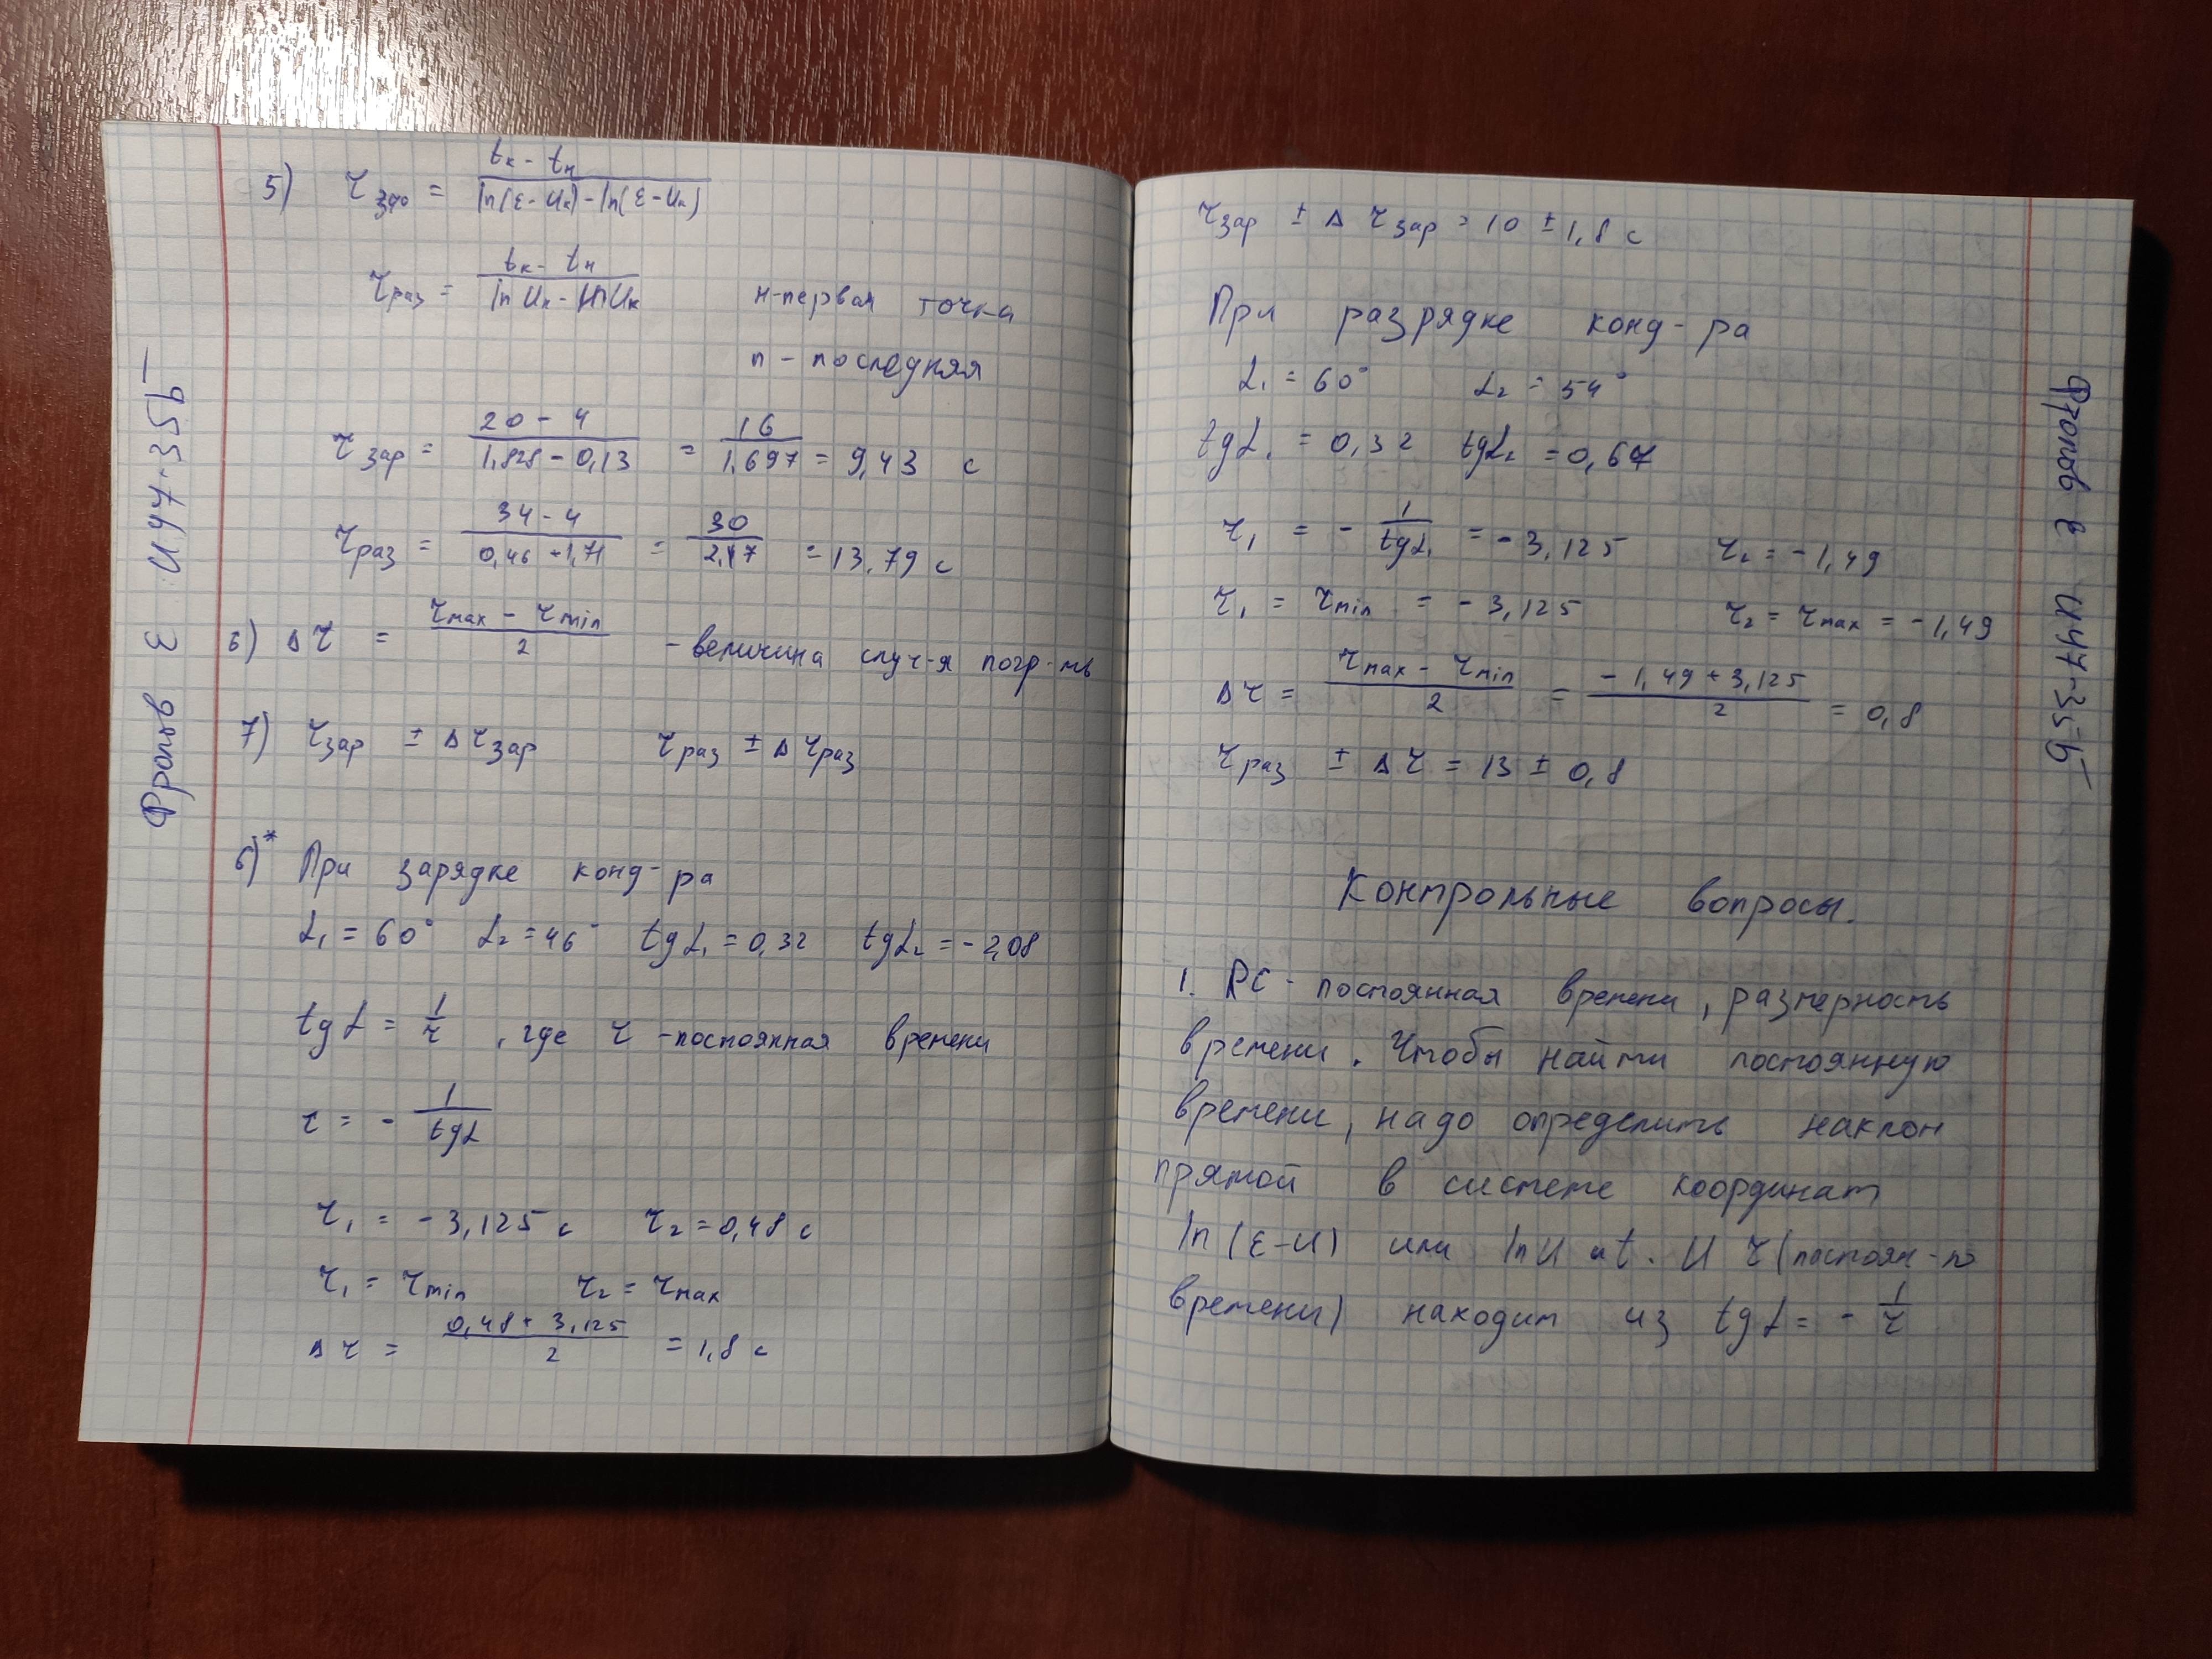 Фролов Е ИУ7-35Б
5) τзар = (tк - tн) / (ln(ε-Uн) - ln(ε-Uк))
τраз = (tк - tн) / (ln Uн - ln Uк)
н-первая точка
п - последняя
τзар = (20 - 4) / (1,828 - 0,13) = 16 / 1,697 = 9,43 с
τраз = (34 - 4) / (0,46 + 1,71) = 30 / 2,17 = 13,79 с
6) Δτ = (τmax - τmin) / 2 - величина случ-я погр-ть
7) τзар ± Δτзар τраз ± Δτраз
6)* При зарядке конд-ра
α₁ = 60° α₂ = 46° tgα₁ = 0,32 tgα₂ = -2,08
tgα = 1/τ , где τ - постоянная времени
τ = - 1/tgα
τ₁ = -3,125 с τ₂ = 0,48 с
τ₁ = τmin τ₂ = τmax
Δτ = (0,48 + 3,125) / 2 = 1,8 с
τзар ± Δτзар = 10 ± 1,8 с
При разрядке конд-ра
α₁ = 60° α₂ = 54°
tgα₁ = 0,32 tgα₂ = 0,67
τ₁ = - 1/tgα₁ = -3,125 τ₂ = -1,49
τ₁ = τmin = -3,125 τ₂ = τmax = -1,49
Δτ = (τmax - τmin) / 2 = (-1,49 + 3,125) / 2 = 0,8
τраз ± Δτ = 13 ± 0,8
Контрольные вопросы.
1. RC - постоянная времени, размерность
времени. Чтобы найти постоянную
времени, надо определить наклон
прямой в системе координат
ln(ε-U) или lnU и t. И τ (постоян-я
времени) находим из tgα = - 1/τ
Фролов Е ИУ7-35Б